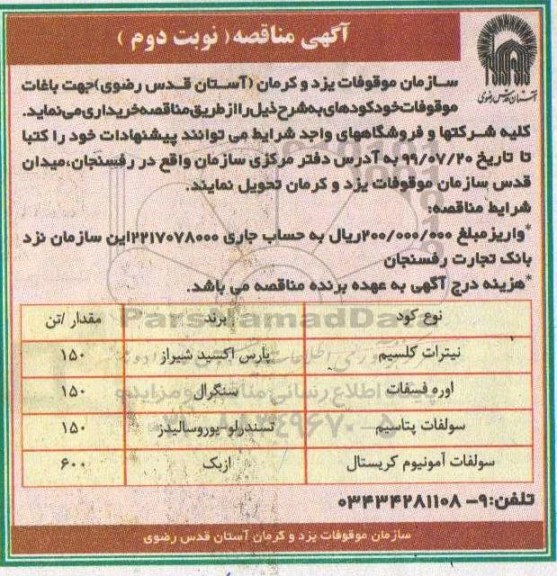 آگهی مناقصه( نوبت دوم )
آستان قدس رضوی
سازمان موقوفات یزد و کرمان (آستان قدس رضوی)جهت باغات
موقوفات خود کودهای به شرح ذیل را از طریق مناقصه خریداری می نماید.
کلیه شرکتها و فروشگاههای واجد شرایط می توانند پیشنهادات خود را کتبا
تا تاریخ ۹۹/۰۷/۲۰ به آدرس دفتر مرکزی سازمان واقع در رفسنجان،میدان
قدس سازمان موقوفات یزد و کرمان تحویل نمایند.
شرایط مناقصه:
*واریز مبلغ ۲۰۰/۰۰۰/۰۰۰ریال به حساب جاری ۲۲۱۷۰۷۸۰۰۰این سازمان نزد
بانک تجارت رفسنجان
*هزینه درج آگهی به عهده برنده مناقصه می باشد.
ParsNamadData
نوع کود برند مقدار /تن
نیترات کلسیم پارس اکسید شیراز ۱۵۰
اوره فسفات سنگرال ۱۵۰
پایگاه اطلاع رسانی مناقصه و مزایده
سولفات پتاسیم تسندرلو-یوروسالیدز ۱۵۰
۸۸۳۴۹۶۷۰-۵
سولفات آمونیوم کریستال ازبک ۶۰۰
تلفن:۹- ۰۳۴۳۴۲۸۱۱۰۸
سازمان موقوفات یزد و کرمان آستان قدس رضوی